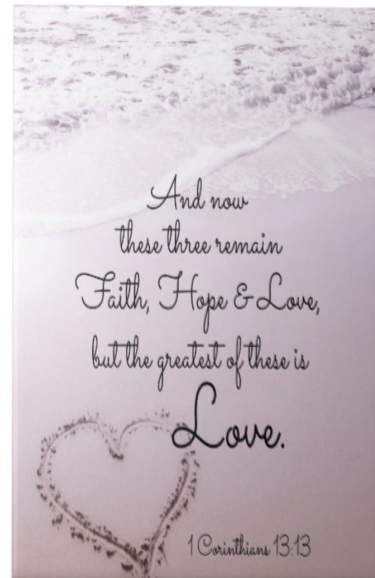 And now
these three remain
Faith, Hope & Love,
but the greatest of these is
Love.
1 Corinthians 13:13